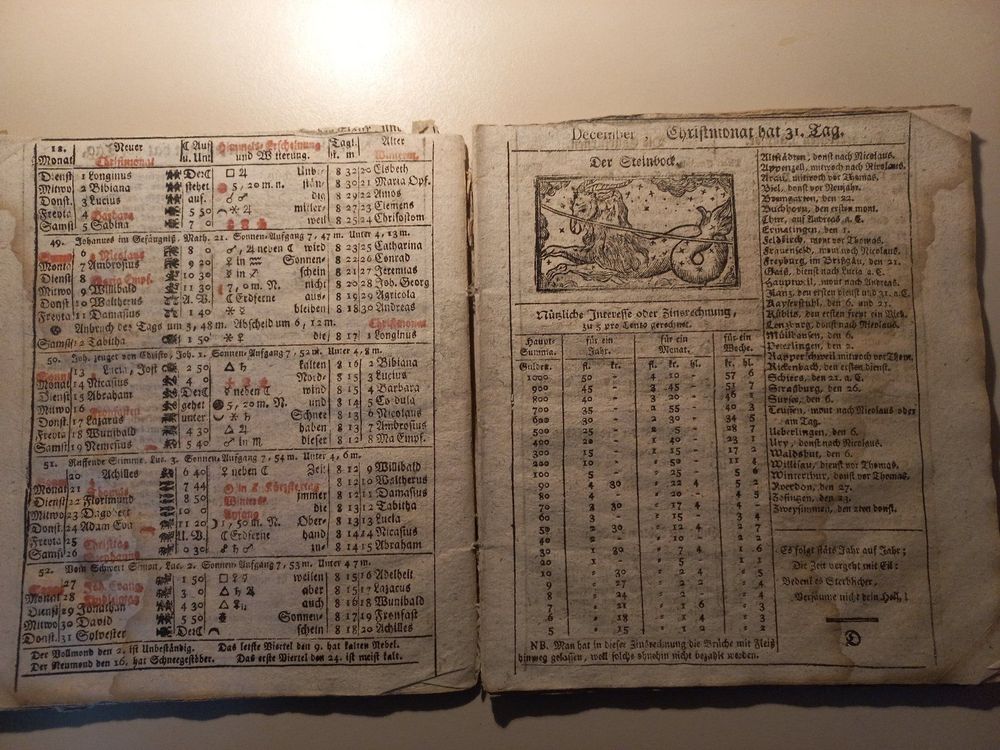 12. Neuer ☾ Auf Himmels-Erscheinung Tagl. Alter
Monat Christmonat u. Unt. und Witterung. st. m. Winterm.
Dienst 1 Longinus Der☾ □ ♃ Unb- 8 32 20 Elsbeth
Mitwo 2 Bibiana stehet 5, 20 m. n. stän- 8 30 21 Maria Opf.
Donst. 3 Lucius auf. dig 8 29 22 Amos
Freyta 4 Barbara 5 50 ⚹ ♃ mitler- 8 27 23 Clemens
Samst 5 Sabina 7 0 weil 8 25 24 Chrisostom
49. Johannes im Gefängniß. Math. 21. Sonnen-Aufgang 7, 47 m. Unter 4, 13 m.
6 Nicolaus 8 0 ♃ neben ☾ wird 8 23 25 Catharina
Monta 7 Ambrosius 9 20 Sonnen- 8 22 26 Conrad
Dienst 8 Maria Empf. 10 30 schein 8 21 27 Jeremias
Mitwo 9 Willibald 11 30 7, 0 m. n. nicht 8 20 28 Joh. Georg
Donst 10 Waltherus A. V. ☾ Erdferne aus- 8 19 29 Agricola
Freyta 11 Damasius 1 40 bleiben 8 18 30 Andreas
Anbruch des Tags um 5, 48 m. Abscheid um 6, 12 m. Christmonat
Samst 12 Tabitha 1 50 ⚹ ♀ die 8 17 1 Longinus
50. Joh. zeuget von Christo, Joh. 1. Sonnen-Aufgang 7, 52 m. Unter 4, 8 m.
13 Lucia, Jost 2 50 △ ♄ kalten 8 16 2 Bibiana
Monat 14 Nicasius 4 0 Nord- 8 15 3 Lucius
Dienst 15 Abraham Der☾ ☿ neben ☾ wind 8 15 4 Barbara
Mitwo 16 gehet 5, 20 m. N. und 8 14 5
Donst. 17 Lazarus unter ⚹ ♄ Schnee 8 13 6 Nicolaus
Freyta 18 Wunibald 4 30 △ ♃ haben 8 13 7 Ambrosius
Samst 19 Nemesius 5 40 ♂ in dieser 8 12 8 Ma Empf.
51. Ruffende Stimme. Luc. 3. Sonnen-Aufgang 7, 54 m. Unter 4, 6 m.
20 Achilles 6 40 ♀ neben ☾ Zeit 8 12 9 Willibald
Monat 21 7 44 8 12 10 Waltherus
Dienst 22 Florimund 8 50 Winter jmmer 8 12 11 Damasius
Mitwo 23 Dagobert 10 0 Anfang die 8 13 12 Tabitha
Donst. 24 Adam Eva 11 20 1, 50 m. N. Ober- 8 13 13 Lucia
Freyta 25 Christtag U. V. ☾ Erdferne hand 8 14 14 Nicasius
Samst 26 Stephanus 0 30 in- 8 14 15 Abraham
52. Vom Schwert Simon, Luc. 2. Sonnen-Aufgang 7, 53 m. Unter 4 7 m.
27 1 50 weilen 8 15 16 Adelheit
Monat 28 Kindleintag 3 0 aber 8 15 17 Lazarus
Dienst 29 Jonathan 4 30 auch 8 16 18 Wunibald
Mitwo 30 David 5 50 Sonnen- 8 17 19 Fronfast
Donst. 31 Sylvester Der☾ schein 8 18 20 Achilles
Der Vollmond den 2. ist Unbeständig. Das letste Viertel den 9. hat kalten Nebel.
Der Neumond den 16. hat Schneegestöber. Das erste Viertel den 24. ist meist kalt.
December, Christmonat hat 31. Tag.
Der Steinbock.
Nützliche Interesse oder Zinsrechnung,
zu 5 pro Cento gerechnet.
Haupt-Summa. für ein Jahr. für ein Monat. für ein Woche.
Gulden. fl. kr. fl. kr. hl. kr. hl.
1000 50 - 4 10 - 57 6
900 45 - 3 45 - 51 7
800 40 - 3 20 - 46 1
700 35 - 2 55 - 40 3
600 30 - 2 30 - 34 5
500 25 - 2 5 - 28 7
400 20 - 1 40 - 23 1
300 15 - 1 15 - 17 2
200 10 - 50 - 11 4
100 5 - 25 - 5 6
90 4 30 22 4 5 2
80 4 - 20 - 4 5
70 3 30 17 4 4 -
60 3 - 15 - 3 4
50 2 30 12 4 2 7
40 2 - 10 - 2 2
30 1 30 7 4 1 6
20 1 - 5 - 1 1
10 30 2 4 5
9 27 2 2 4
8 24 2 - 4
7 21 1 6 3
6 18 1 4 3
5 15 1 2 2
NB. Man hat in dieser Zinsrechnung die Brüche mit Fleiß
hinweg gelassen, weil solche ohnehin nicht bezahlt werden.
Altstädten, donst nach Nicolaus.
Appenzell, mitwoch nach Nicolaus.
Arau, mitwoch vor Thomas.
Biel, donst vor Neujahr.
Bremgarten, den 22.
Buchhorn, den ersten mont.
Chur, auf Andreas a. C.
Ermatingen, den 1.
Feldkirch, mont vor Thomas.
Frauenfeld, mont nach Nicolaus.
Freyburg im Brißgäu, den 21.
Gaiß, dienst nach Lucia a. C.
Hauptweil, mont nach Andreas.
Ilanz, den ersten dienst und 31. a. C.
Kayserstuhl, den 6. und 21.
Küblis, den ersten freyt ein Vieh.
Lenzburg, donst nach Nicolaus.
Müllhausen, den 6.
Oeterlingen, den 2.
Rapperschweil mitwoch vor Thom.
Rickenbach, den ersten dienst.
Schiers, den 21. a. C.
Straßburg, den 26.
Sursee, den 6.
Teuffen, mont nach Nicolaus oder
am Tag.
Ueberlingen, den 6.
Ury, donst nach Nicolaus.
Waldshut, den 6.
Willisau, dienst vor Thomas.
Winterthur, donst vor Thomas.
Yverdon, den 27.
Zofingen, den 23.
Zweysimmen, den 2ten donst.
Es folgt stäts Jahr auf Jahr;
Die Zeit vergeht mit Eil;
Bedenk es Sterblicher,
Versäume nicht dein Heil!
D